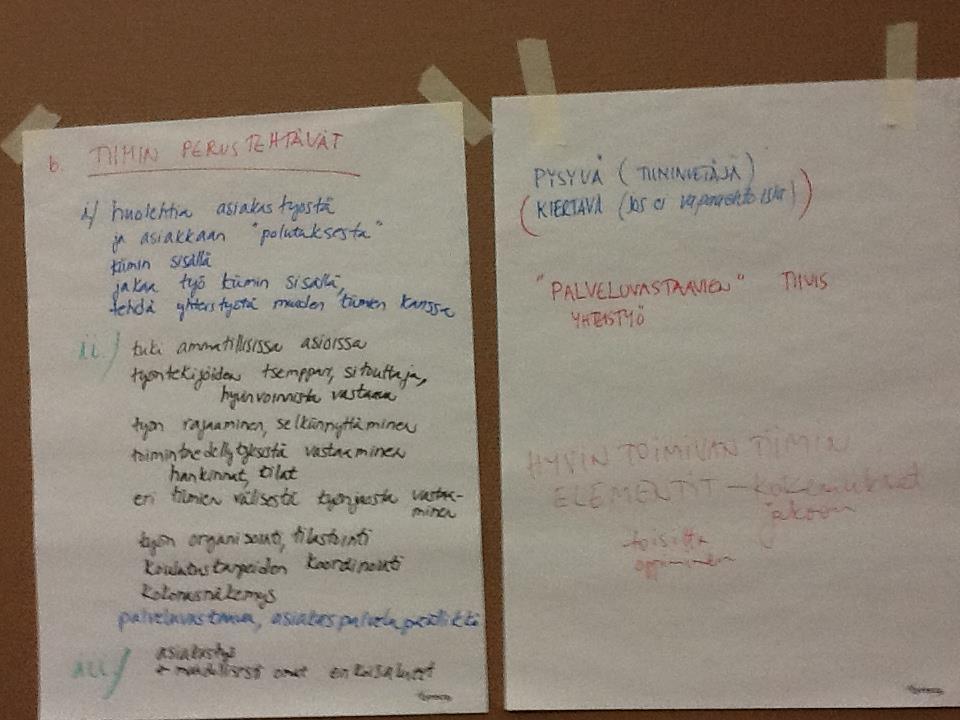 b. TIIMIN PERUSTEHTÄVÄT
i/ huolehtia asiakastyöstä
ja asiakkaan "polutuksesta"
tiimin sisällä
jakaa työ tiimin sisällä,
tehdä yhteistyötä muiden tiimien kanssa
ii/ tuki ammatillisissa asioissa
työntekijöiden tsemppari, sitouttaja,
hyvinvoinnista vastaava
työn rajaaminen, selkiinnyttäminen
toimintaedellytyksistä vastaaminen
hankinnat, tilat
eri tiimien välisestä työnjaosta vastaa-
minen
työn organisointi, tilastointi
koulutustarpeiden koordinointi
kokonaisnäkemys
palveluvastaava, asiakaspalvelupäällikkö
iii/ asiakastyö
+ mahdollisesti omat erikoisalueet
PYSYVÄ (TIIMINVETÄJÄ)
(KIERTÄVÄ (jos ei vapaaehtoisia))
"PALVELUVASTAAVIEN" TIIVIS
YHTEISTYÖ
HYVIN TOIMIVAN TIIMIN
ELEMENTIT – kokemukset
jakoon
toisilta
oppiminen